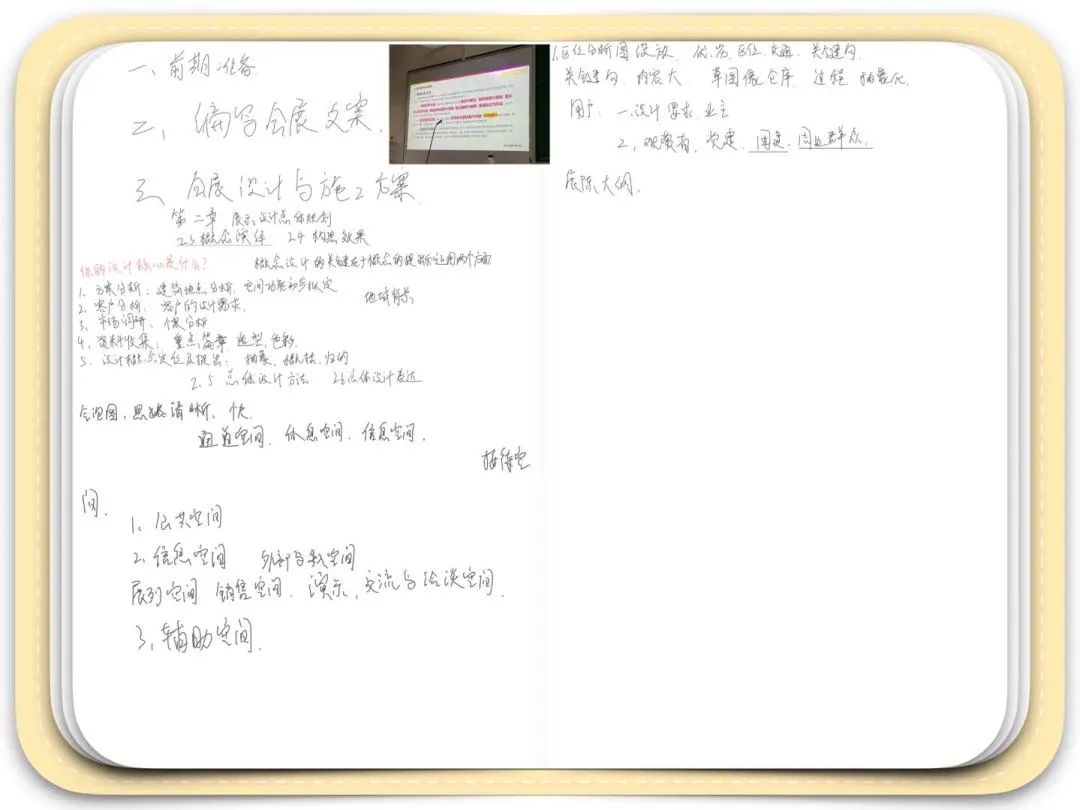 一、前期准备
二、编写会展文案.
三、会展设计与施工方案.
第二章 展示设计总体规划
2.3 概念演绎 2.4 构思效果
你的设计核心是什么?
概念设计的关键在于概念的提出与运用两个方面
1、方案分析：建筑地点分析，空间功能初步拟定
地域背景
2、客户分析：客户的设计需求.
3、市场调研、个案分析
4、资料收集：重点，篇章，造型，色彩.
5、设计概念定位及提出：抽象、概括、归纳
2.5 总体设计方法 2.6 总体设计表达
气泡图、思路清晰、快.
通道空间、休息空间、信息空间.
接待空
间.
1、公共空间
2、信息空间
展列空间 销售空间、演示、交流与洽谈空间.
3、辅助空间.
1.区位分析图 区位 交通 关键句
关键句，内容大 草图 过程 抽象化.
用户：一、设计需求，业主
2、观赛者，周边群众.
展陈大纲.